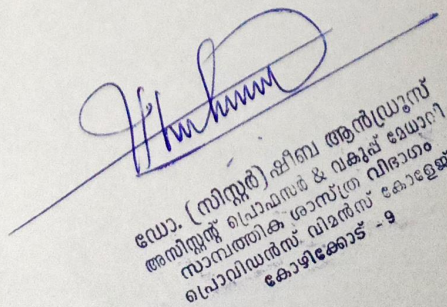 ഡോ. (സിസ്റ്റർ) ഷീബ ആൻഡ്രൂസ്
അസിസ്റ്റന്റ് പ്രൊഫസർ & വകുപ്പ് മേധാവി
സാമ്പത്തിക ശാസ്ത്ര വിഭാഗം
പ്രൊവിഡൻസ് വിമൻസ് കോളേജ്
കോഴിക്കോട് - 9